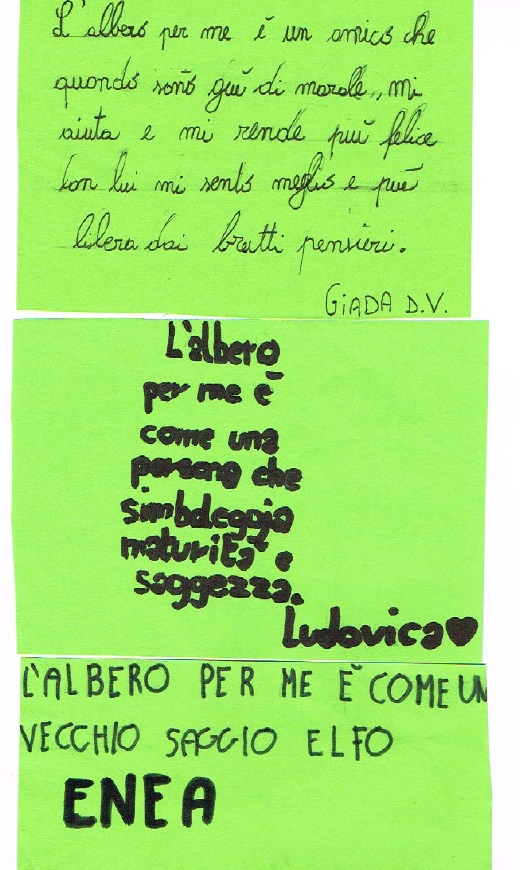 L'albero per me è un amico che
quando sono giù di morale, mi
aiuta e mi rende più felice
Con lui mi sento meglio e più
libera dai brutti pensieri.
GIADA D.V.
L'albero
per me è
come una
persona che
simboleggia
maturità e
saggezza.
Ludovica♥
L'ALBERO PER ME È COME UN
VECCHIO SAGGIO ELFO
ENEA